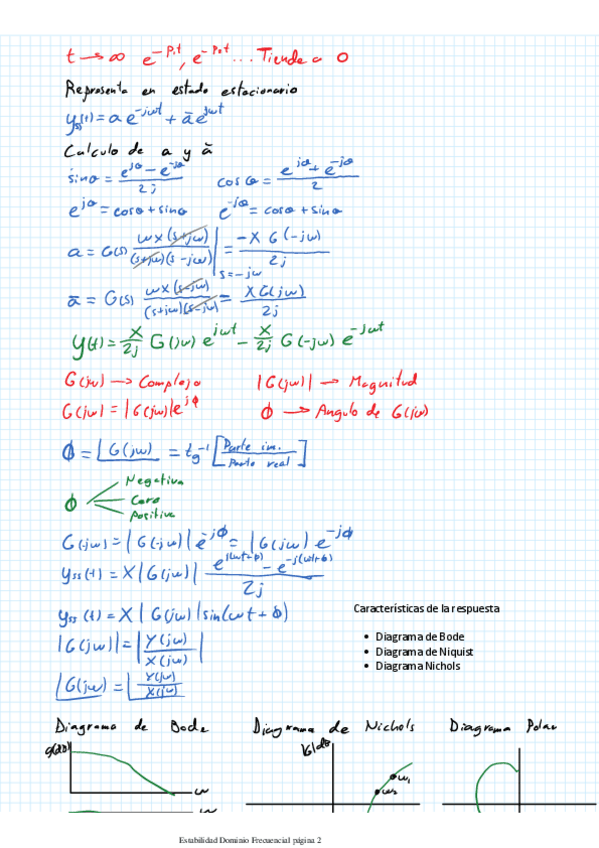 t → ∞ e^{-p₁t}, e^{-p₂t} ... Tiende a 0
Representa en estado estacionario
y_{ss}(t) = a e^{-jωt} + ā e^{jωt}
Calculo de a y ā
sinθ = (e^{jθ} - e^{-jθ}) / 2j cosθ = (e^{jθ} + e^{-jθ}) / 2
e^{jθ} = cosθ + sinθ e^{-jθ} = cosθ + sinθ
a = G(s) ωX(s+jω) / (s+jω)(s-jω) |_{s=-jω} = -X G(-jω) / 2j
ā = G(s) ωX(s-jω) / (s+jω)(s-jω) = X G(jω) / 2j
y(t) = X/2j G(jω) e^{jωt} - X/2j G(-jω) e^{-jωt}
G(jω) → Complejo |G(jω)| → Magnitud
G(jω) = |G(jω)| e^{jϕ} ϕ → Angulo de G(jω)
ϕ = ∠G(jω) = tg^{-1} [Parte im. / Parte real]
Negativa
ϕ Cero
Positiva
G(-jω) = |G(-jω)| e^{-jϕ} = |G(jω)| e^{-jϕ}
y_{ss}(t) = X|G(jω)| (e^{j(ωt+ϕ)} - e^{-j(ωt+ϕ)}) / 2j
y_{ss}(t) = X|G(jω)| sin(ωt + ϕ)
|G(jω)| = |Y(jω) / X(jω)|
∠G(jω) = ∠Y(jω) / X(jω)
Características de la respuesta
• Diagrama de Bode
• Diagrama de Niquist
• Diagrama Nichols
Diagrama de Bode Diagrama de Nichols Diagrama Polar
g(db)
ω
|G|db
ω₁
ω₂
ω
Estabilidad Dominio Frecuencial página 2